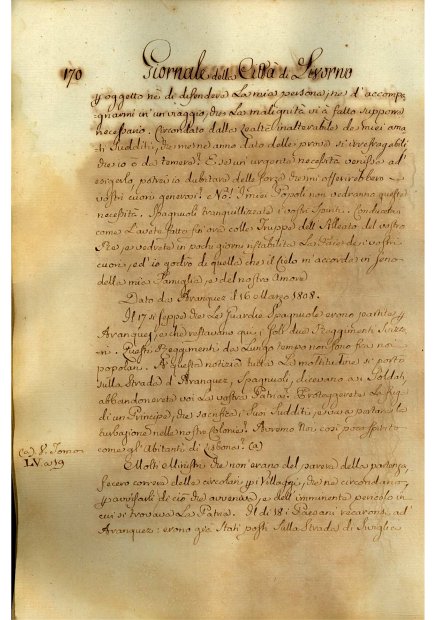 170 Giornale della Città di Livorno
p oggetto nè di difendere la mia persona, ne d'accompa-
gnarmi in un viaggio, che la malignità vi à fatto supporre
necessario. Circondato dalla Lealtà inalterabile de' miei ama-
ti Sudditi, che mene anno dato delle prove sì irrefragabili
che io ò da temere? E se un urgente necessità venisse ad
esigerlo, potrei io dubitare delle forze che mi offerirebbero i
vostri cuori generosi? No! I miei Popoli non vedranno questa
necessità. Spagnuoli tranquillizzate i vostri Spiriti. Conducetevi
come l'avete fatto fin'ora colle Truppe dell'Alleato del vostro
Re, e vedrete in pochi giorni ristabilita la Pace de' vostri
cuori, ed io godrò di quella che il Cielo m'accorda in seno
della mia Famiglia, e del vostro Amore
Dato da Aranquez il 16 Marzo 1808.
Il 17 si seppe che le Guardie Spagnuole erono partite p
Aranquez, e che restavano qui i soli due Reggimenti Svizze-
ri. Questi Reggimenti da lungo tempo non sono fra noi
popolari. A questa notizia tutta la moltitudine si portò
sulla Strada d'Aranquez, Spagnuoli, dicevano a i Soldati,
abbandonerete voi la vostra Patria? Proteggerete la fuga
di un Principe, che sacrifica i Suoi Sudditi, e và a portare la
turbazione nelle nostre Colonie? Avremo noi così poco spirito
come gl'Abitanti di Lisbona? (a)
(a) V. Tomo
LV a 19
Molti Ministri che non erano del parere della partenza,
fecero correre delle circolari p i Villaggi, che ne circondano,
p avvisarli di ciò che avveniva, e dell'imminente pericolo in
cui si trovava la Patria. Il dì 18 i Paesani recaronsi ad'
Aranquez: erono già stati posti sulla Strada di Siviglia